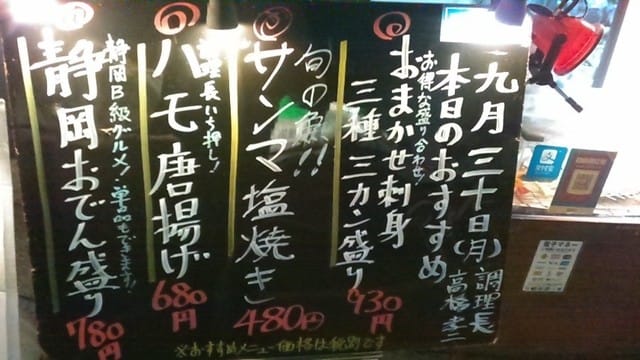 九月三十日(月)調理長
本日のおすすめ 高橋孝二
お得な盛り合わせ!
おまかせ刺身
三種 三カン盛り 930円
旬の魚!!
サンマ塩焼き 480円
調理長いち押し!
ハモ唐揚げ 680円
静岡B級グルメ! 単品もできます!
静岡おでん盛り 780円
※おすすめメニュー価格は税別です
支付宝
電子マネー